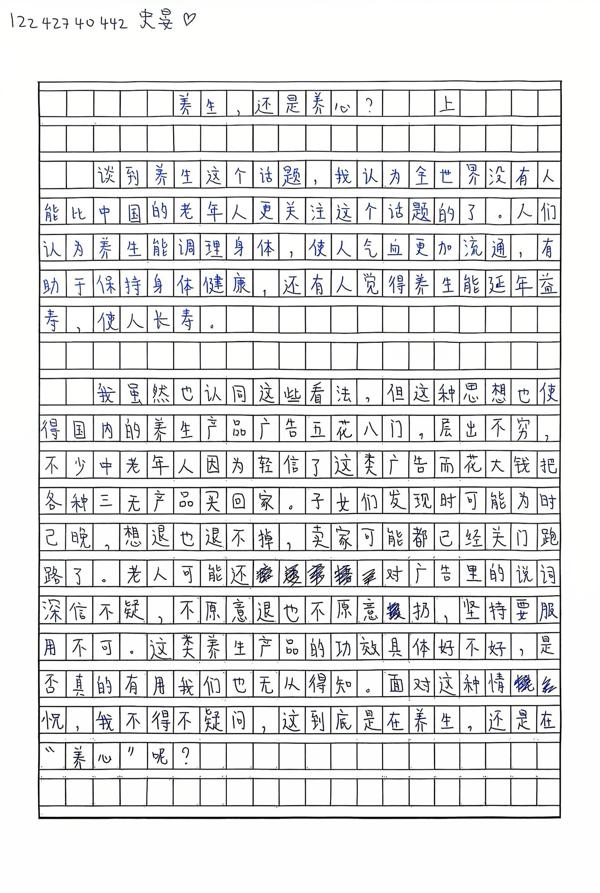 12242740442 史晏♡
养生，还是养心？ 上
谈到养生这个话题，我认为全世界没有人
能比中国的老年人更关注这个话题的了。人们
认为养生能调理身体，使人气血更加流通，有
助于保持身体健康，还有人觉得养生能延年益
寿，使人长寿。
我虽然也认同这些看法，但这种思想也使
得国内的养生产品广告五花八门，层出不穷，
不少中老年人因为轻信了这类广告而花大钱把
各种三无产品买回家。子女们发现时可能为时
已晚，想退也退不掉，卖家可能都已经关门跑
路了。老人可能还对广告里的说词
深信不疑，不原意退也不原意扔，坚持要服
用不可。这类养生产品的功效具体好不好，是
否真的有用我们也无从得知。面对这种情
怳，我不得不疑问，这到底是在养生，还是在
“养心”呢？